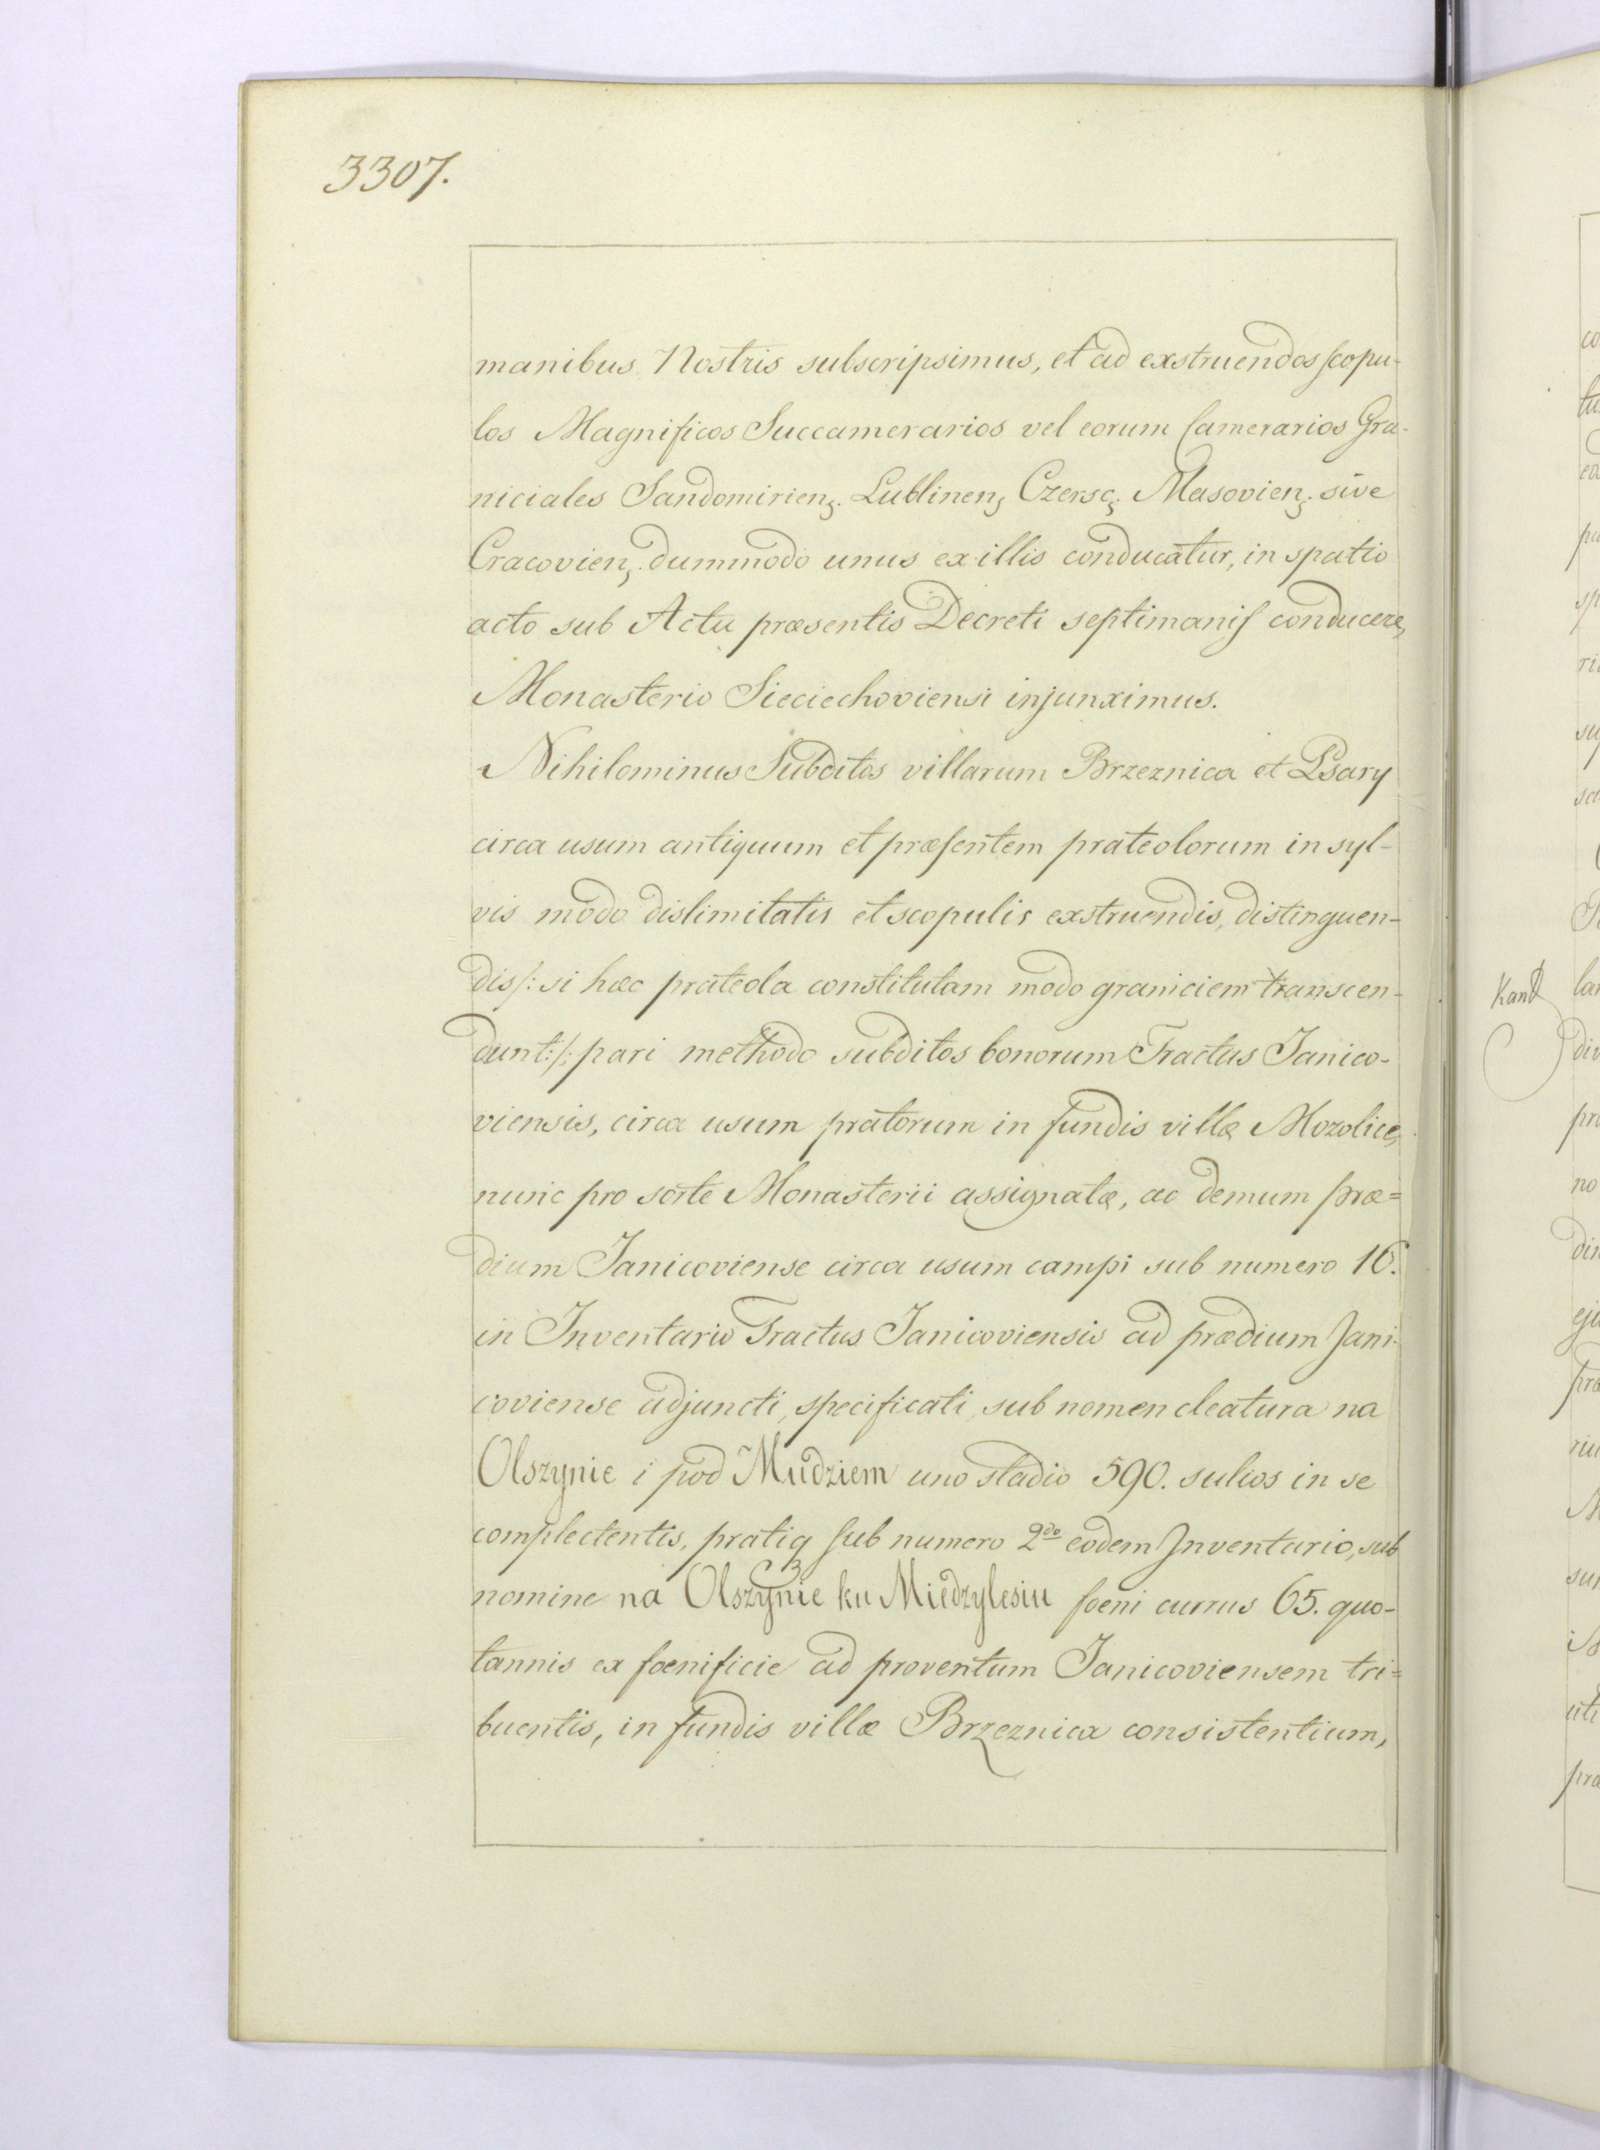 3307.
manibus Nostris subscripsimus, et ad exstruendos scopu-
los Magnificos Succamerarios vel eorum Camerarios Gra-
niciales Sandomirien. Lublinen, Czersc, Masovien. sive
Cracovien, dummodo unus ex illis conducatur, in spatio
acto sub Actu præsentis Decreti septimanis conducere,
Monasterio Sieciechoviensi injunximus.
Nihilominus Subditos villarum Brzeznica et Psary
circa usum antiquum et præsentem prateolorum in syl-
vis modo dislimitatis et scopulis exstruendis, distinguen-
dis/: si hæc prateola constitutam modo graniciem transcen-
dunt:/: pari methodo subditos bonorum Tractus Janico-
viensis, circa usum pratorum in fundis villæ Mozolice,
nunc pro sorte Monasterii assignatæ, ac demum præ=
dium Janicoviense circa usum campi sub numero 16.
in Inventario Tractus Janicoviensis ad prædium Jani-
coviense adjuncti, specificati, sub nomencleatura na
Olszynie i pod Mudziem uno stadio 590. sulcos in se
complectentis, pratiq sub numero 2do eodem Inventario, sub
nomine na Olszynie ku Miedzylesiu foeni currus 65. quo-
tannis ex foenificie ad proventum Janicoviensem tri=
buentis, in fundis villæ Brzeznica consistentium,
Kand